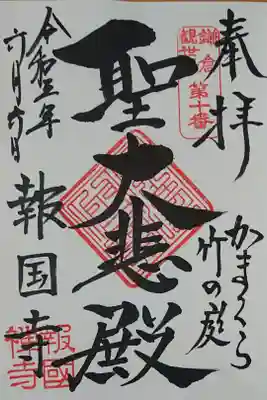 奉拝
かまくら
竹の庭
鎌倉
観世音
第十番
聖大悲殿
令和五年
六月六日
報国寺
報國
禅寺